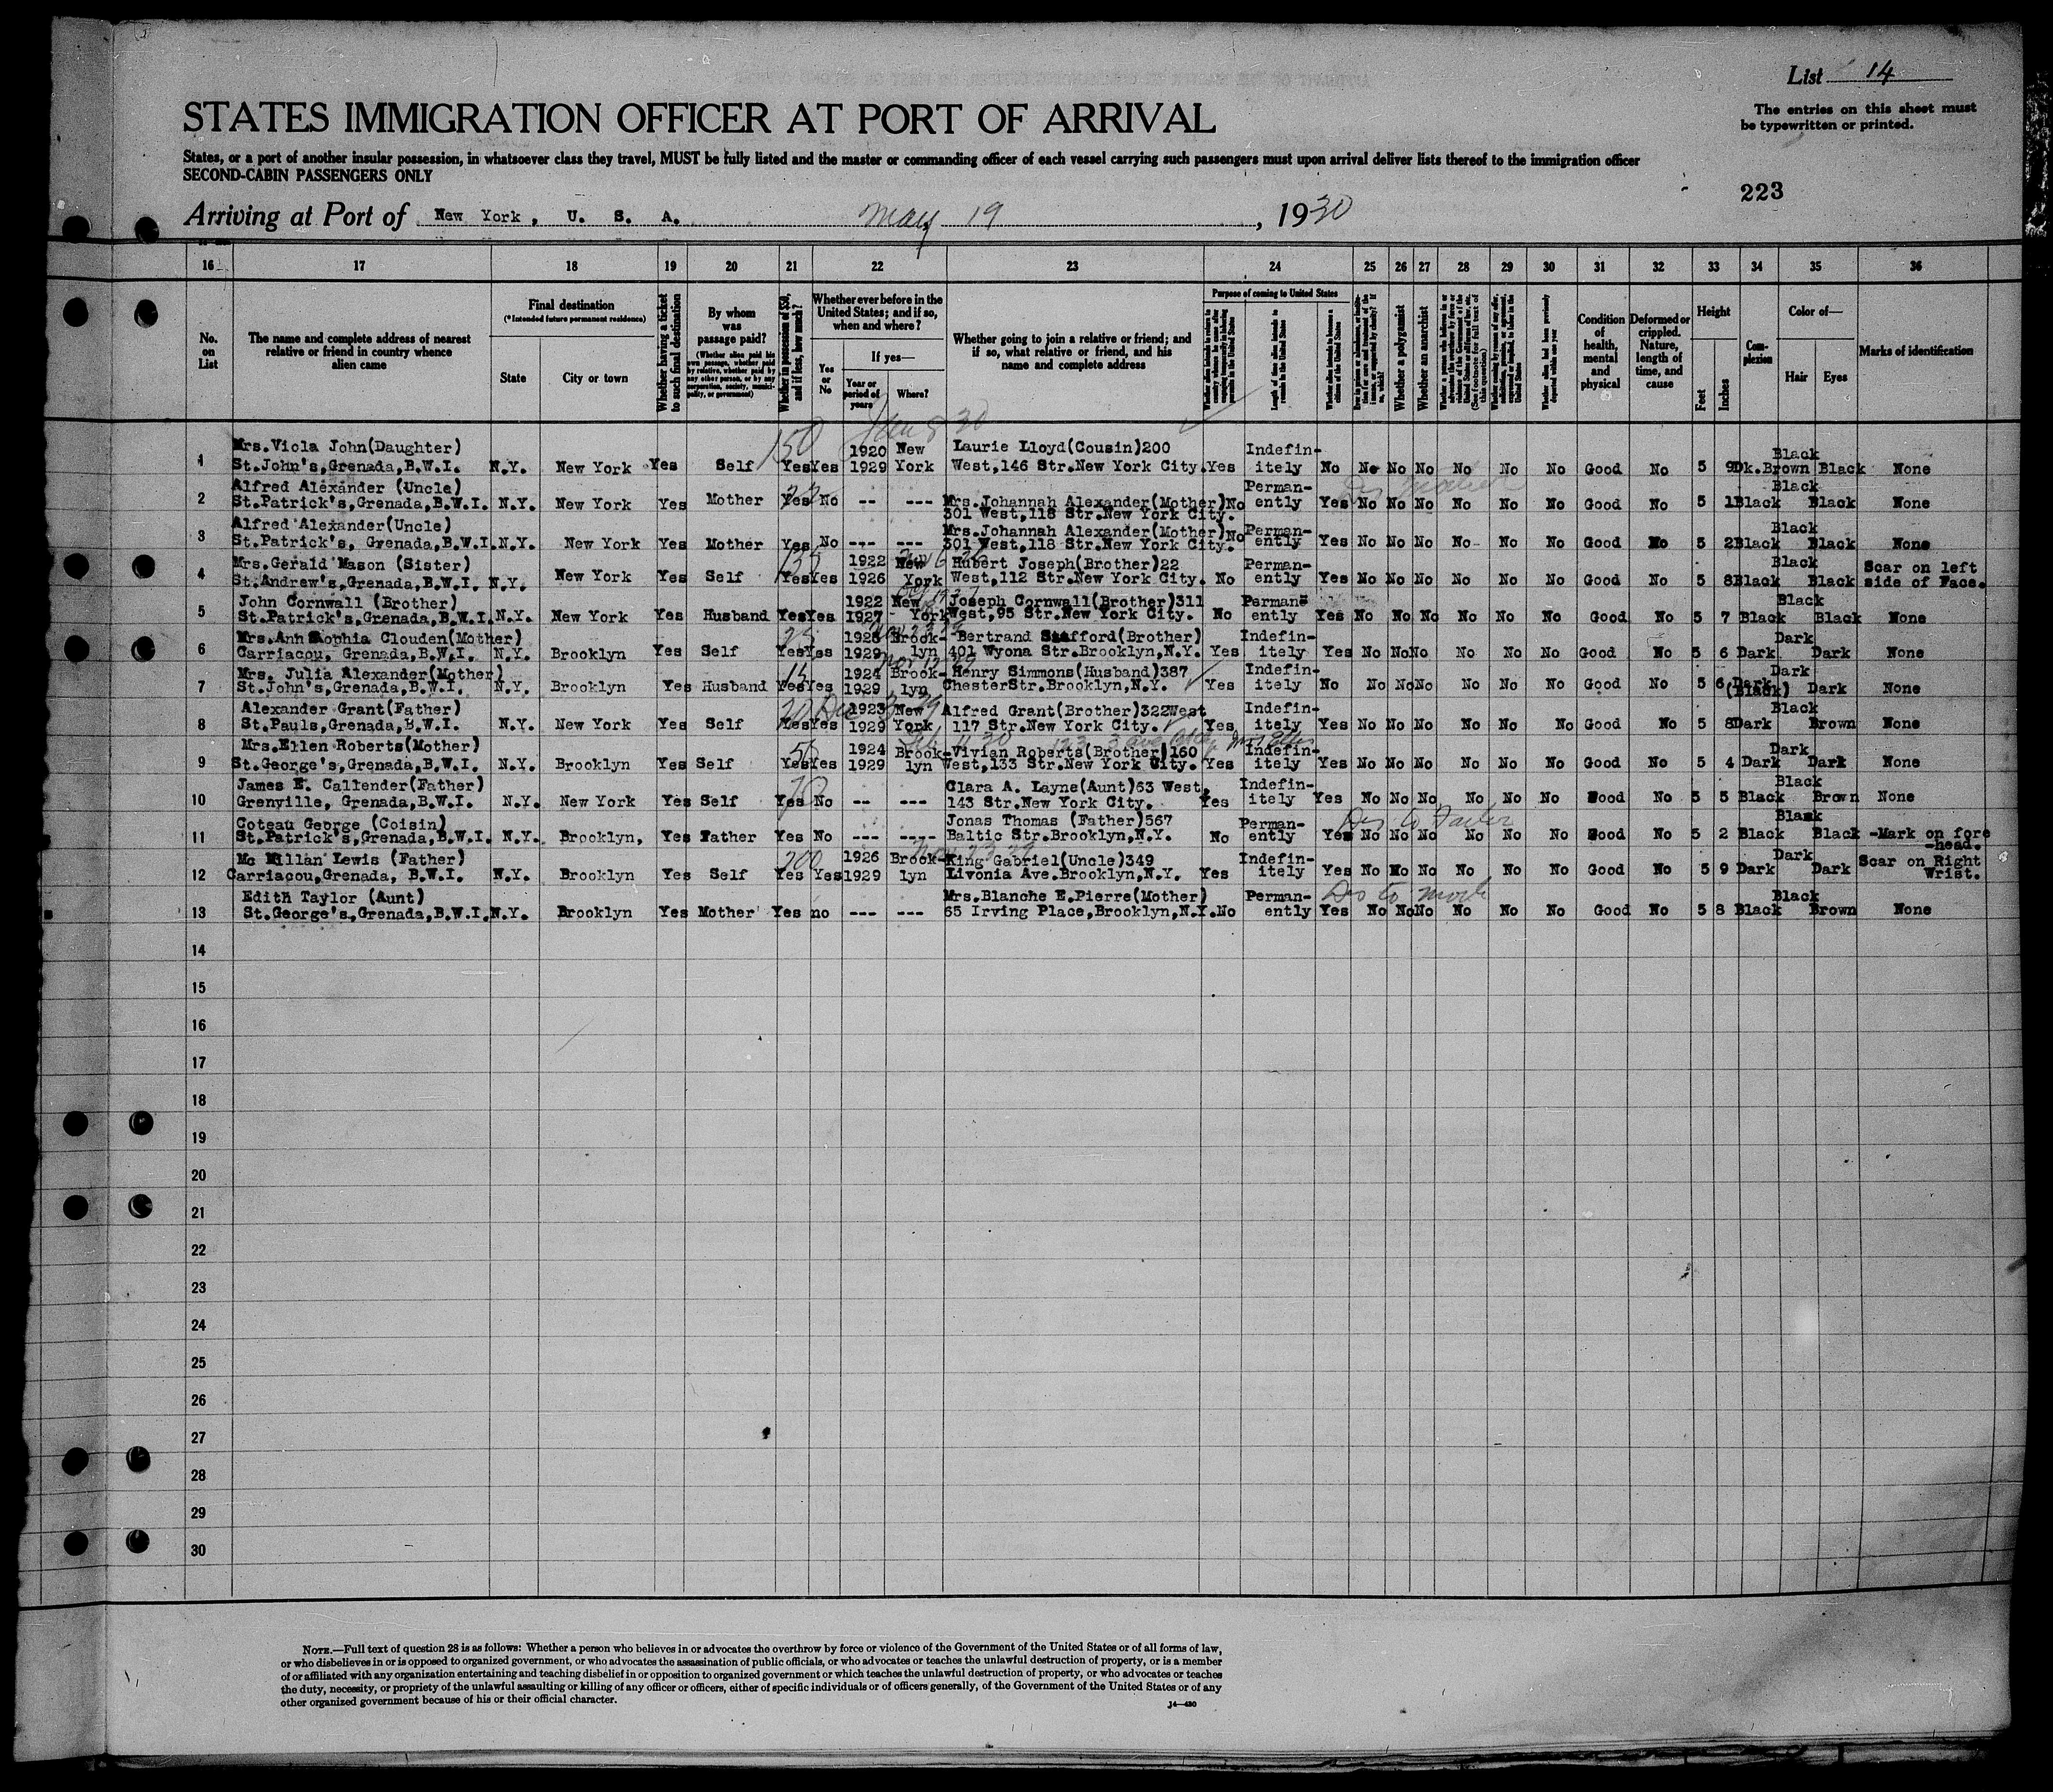 List 14
The entries on this sheet must
be typewritten or printed.
STATES IMMIGRATION OFFICER AT PORT OF ARRIVAL
States, or a port of another insular possession, in whatsoever class they travel, MUST be fully listed and the master or commanding officer of each vessel carrying such passengers must upon arrival deliver lists thereof to the immigration officer
SECOND-CABIN PASSENGERS ONLY
223
Arriving at Port of New York, U. S. A. May 19, 1930
16 17 18 19 20 21 22 23 24 25 26 27 28 29 30 31 32 33 34 35 36
No. on List
The name and complete address of nearest relative or friend in country whence alien came
Final destination
(*Intended future permanent residence)
State
City or town
Whether having a ticket to such final destination
By whom was passage paid?
(Whether alien paid his own passage, whether paid by relative, whether paid by any other person, or by any corporation, society, municipality, or government)
Whether in possession of $50, and if less, how much?
Whether ever before in the United States; and if so, when and where?
Yes or No
If yes—
Year or period of years
Where?
Whether going to join a relative or friend; and if so, what relative or friend, and his name and complete address
Purpose of coming to United States
Length of time alien intends to remain in the United States
Whether alien intends to become a citizen of the United States
Whether a polygamist
Whether an anarchist
Condition of health, mental and physical
Deformed or crippled. Nature, length of time, and cause
Height
Feet
Inches
Complexion
Color of—
Hair
Eyes
Marks of identification
150 Jan 8 30
Mrs.Viola John(Daughter) 1920 New Laurie Lloyd(Cousin)200 Indefin- Black
1 St.John's,Grenada,B.W.I. N.Y. New York Yes Self Yes Yes 1929 York West,146 Str.New York City. Yes itely No No No No No No No Good No 5 9 Dk.Brown Black None
Alfred Alexander (Uncle) Perman- Black
2 St.Patrick's,Grenada,B.W.I. N.Y. New York Yes Mother Yes No -- --- Mrs.Johannah Alexander(Mother) No ently Yes No No No No No No Good No 5 1 Black Black None
301 West,118 Str.New York City.
Alfred Alexander(Uncle) Mrs.Johannah Alexander(Mother) Perman- Black
3 St.Patrick's, Grenada,B.W.I. N.Y. New York Yes Mother Yes No --- --- 301 West,118 Str.New York City. No ently Yes No No No No No No Good No 5 2 Black Black None
Mrs.Gerald Mason (Sister) 1922 New Hubert Joseph(Brother)22 Perman- Black Scar on left
4 St.Andrew's,Grenada,B.W.I. N.Y. New York Yes Self Yes Yes 1926 York West,112 Str.New York City. No ently Yes No No No No No No Good No 5 8 Black Black side of Face.
John Cornwall (Brother) 1922 New Joseph Cornwall(Brother)311 Permane Black
5 St.Patrick's,Grenada,B.W.I. N.Y. New York Yes Husband Yes Yes 1927 York West,95 Str.New York City. No ently Yes No No No No No No Good No 5 7 Black Black None
Mrs.Ann Sophia Clouden(Mother) 25 1928 Brook- Bertrand Stafford(Brother) Indefin- Dark
6 Carriacou, Grenada,B.W.I. N.Y. Brooklyn Yes Self Yes Yes 1929 lyn 401 Wyona Str.Brooklyn,N.Y. Yes itely Yes No No No No No No Good No 5 6 Dark Dark None
Mrs. Julia Alexander(Mother) 15 1924 Brook- Henry Simmons(Husband)387 Indefin- Dark
7 St.John's,Grenada,B.W.I. N.Y. Brooklyn Yes Husband Yes Yes 1929 lyn ChesterStr.Brooklyn,N.Y. Yes itely No No No No No No No Good No 5 6 Dark (Black) Dark None
Alexander Grant(Father) 1923 New Alfred Grant(Brother)322West Indefin- Black
8 St.Pauls,Grenada,B.W.I. N.Y. New York Yes Self Yes Yes 1929 York 117 Str.New York City. Yes itely Yes No No No No No No Good No 5 8 Dark Brown None
Mrs.Ellen Roberts(Mother) 1924 Brook- Vivian Roberts(Brother)160 Indefin- Dark
9 St.George's,Grenada,B.W.I. N.Y. Brooklyn Yes Self Yes Yes 1929 lyn West,133 Str.New York City. Yes itely Yes No No No No No No Good No 5 4 Dark Dark None
James E. Callender(Father) Clara A. Layne(Aunt)63 West, Indefin- Black
10 Grenville, Grenada,B.W.I. N.Y. New York Yes Self Yes No -- --- 143 Str.New York City. Yes itely Yes No No No No No No Good No 5 5 Black Brown None
Coteau George (Coisin) Jonas Thomas (Father)567 Perman- Black
11 St.Patrick's,Grenada,B.W.I. N.Y. Brooklyn, Yes Father Yes No --- ---- Baltic Str.Brooklyn,N.Y. No ently Yes No No No No No No Good No 5 2 Black Black -Mark on fore
-head.
Mc Millan Lewis (Father) 200 1926 Brook- King Gabriel(Uncle)349 Indefin- Dark Scar on Right
12 Carriacou,Grenada, B.W.I. N.Y. Brooklyn Yes Self Yes Yes 1929 lyn Livonia Ave.Brooklyn,N.Y. Yes itely Yes No No No No No No Good No 5 9 Dark Dark Wrist.
Edith Taylor (Aunt) Mrs.Blanche E.Pierre(Mother) Perman- Black
13 St.George's,Grenada,B.W.I. N.Y. Brooklyn Yes Mother Yes no --- --- 65 Irving Place,Brooklyn,N.Y. No ently Yes No No No No No No Good No 5 8 Black Brown None
14
15
16
17
18
19
20
21
22
23
24
25
26
27
28
29
30
NOTE.—Full text of question 28 is as follows: Whether a person who believes in or advocates the overthrow by force or violence of the Government of the United States or of all forms of law,
or who disbelieves in or is opposed to organized government, or who advocates the assassination of public officials, or who advocates or teaches the unlawful destruction of property, or is a member
of or affiliated with any organization entertaining and teaching disbelief in or opposition to organized government or which teaches the unlawful destruction of property, or who advocates or teaches
the duty, necessity, or propriety of the unlawful assaulting or killing of any officer or officers, either of specific individuals or of officers generally, of the Government of the United States or of any
other organized government because of his or their official character.
14—430